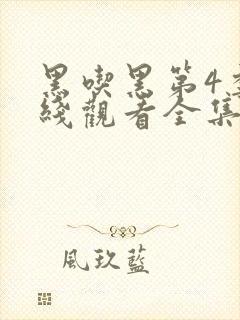 黑喫黑第4季
綫觀看全集
風玖藍